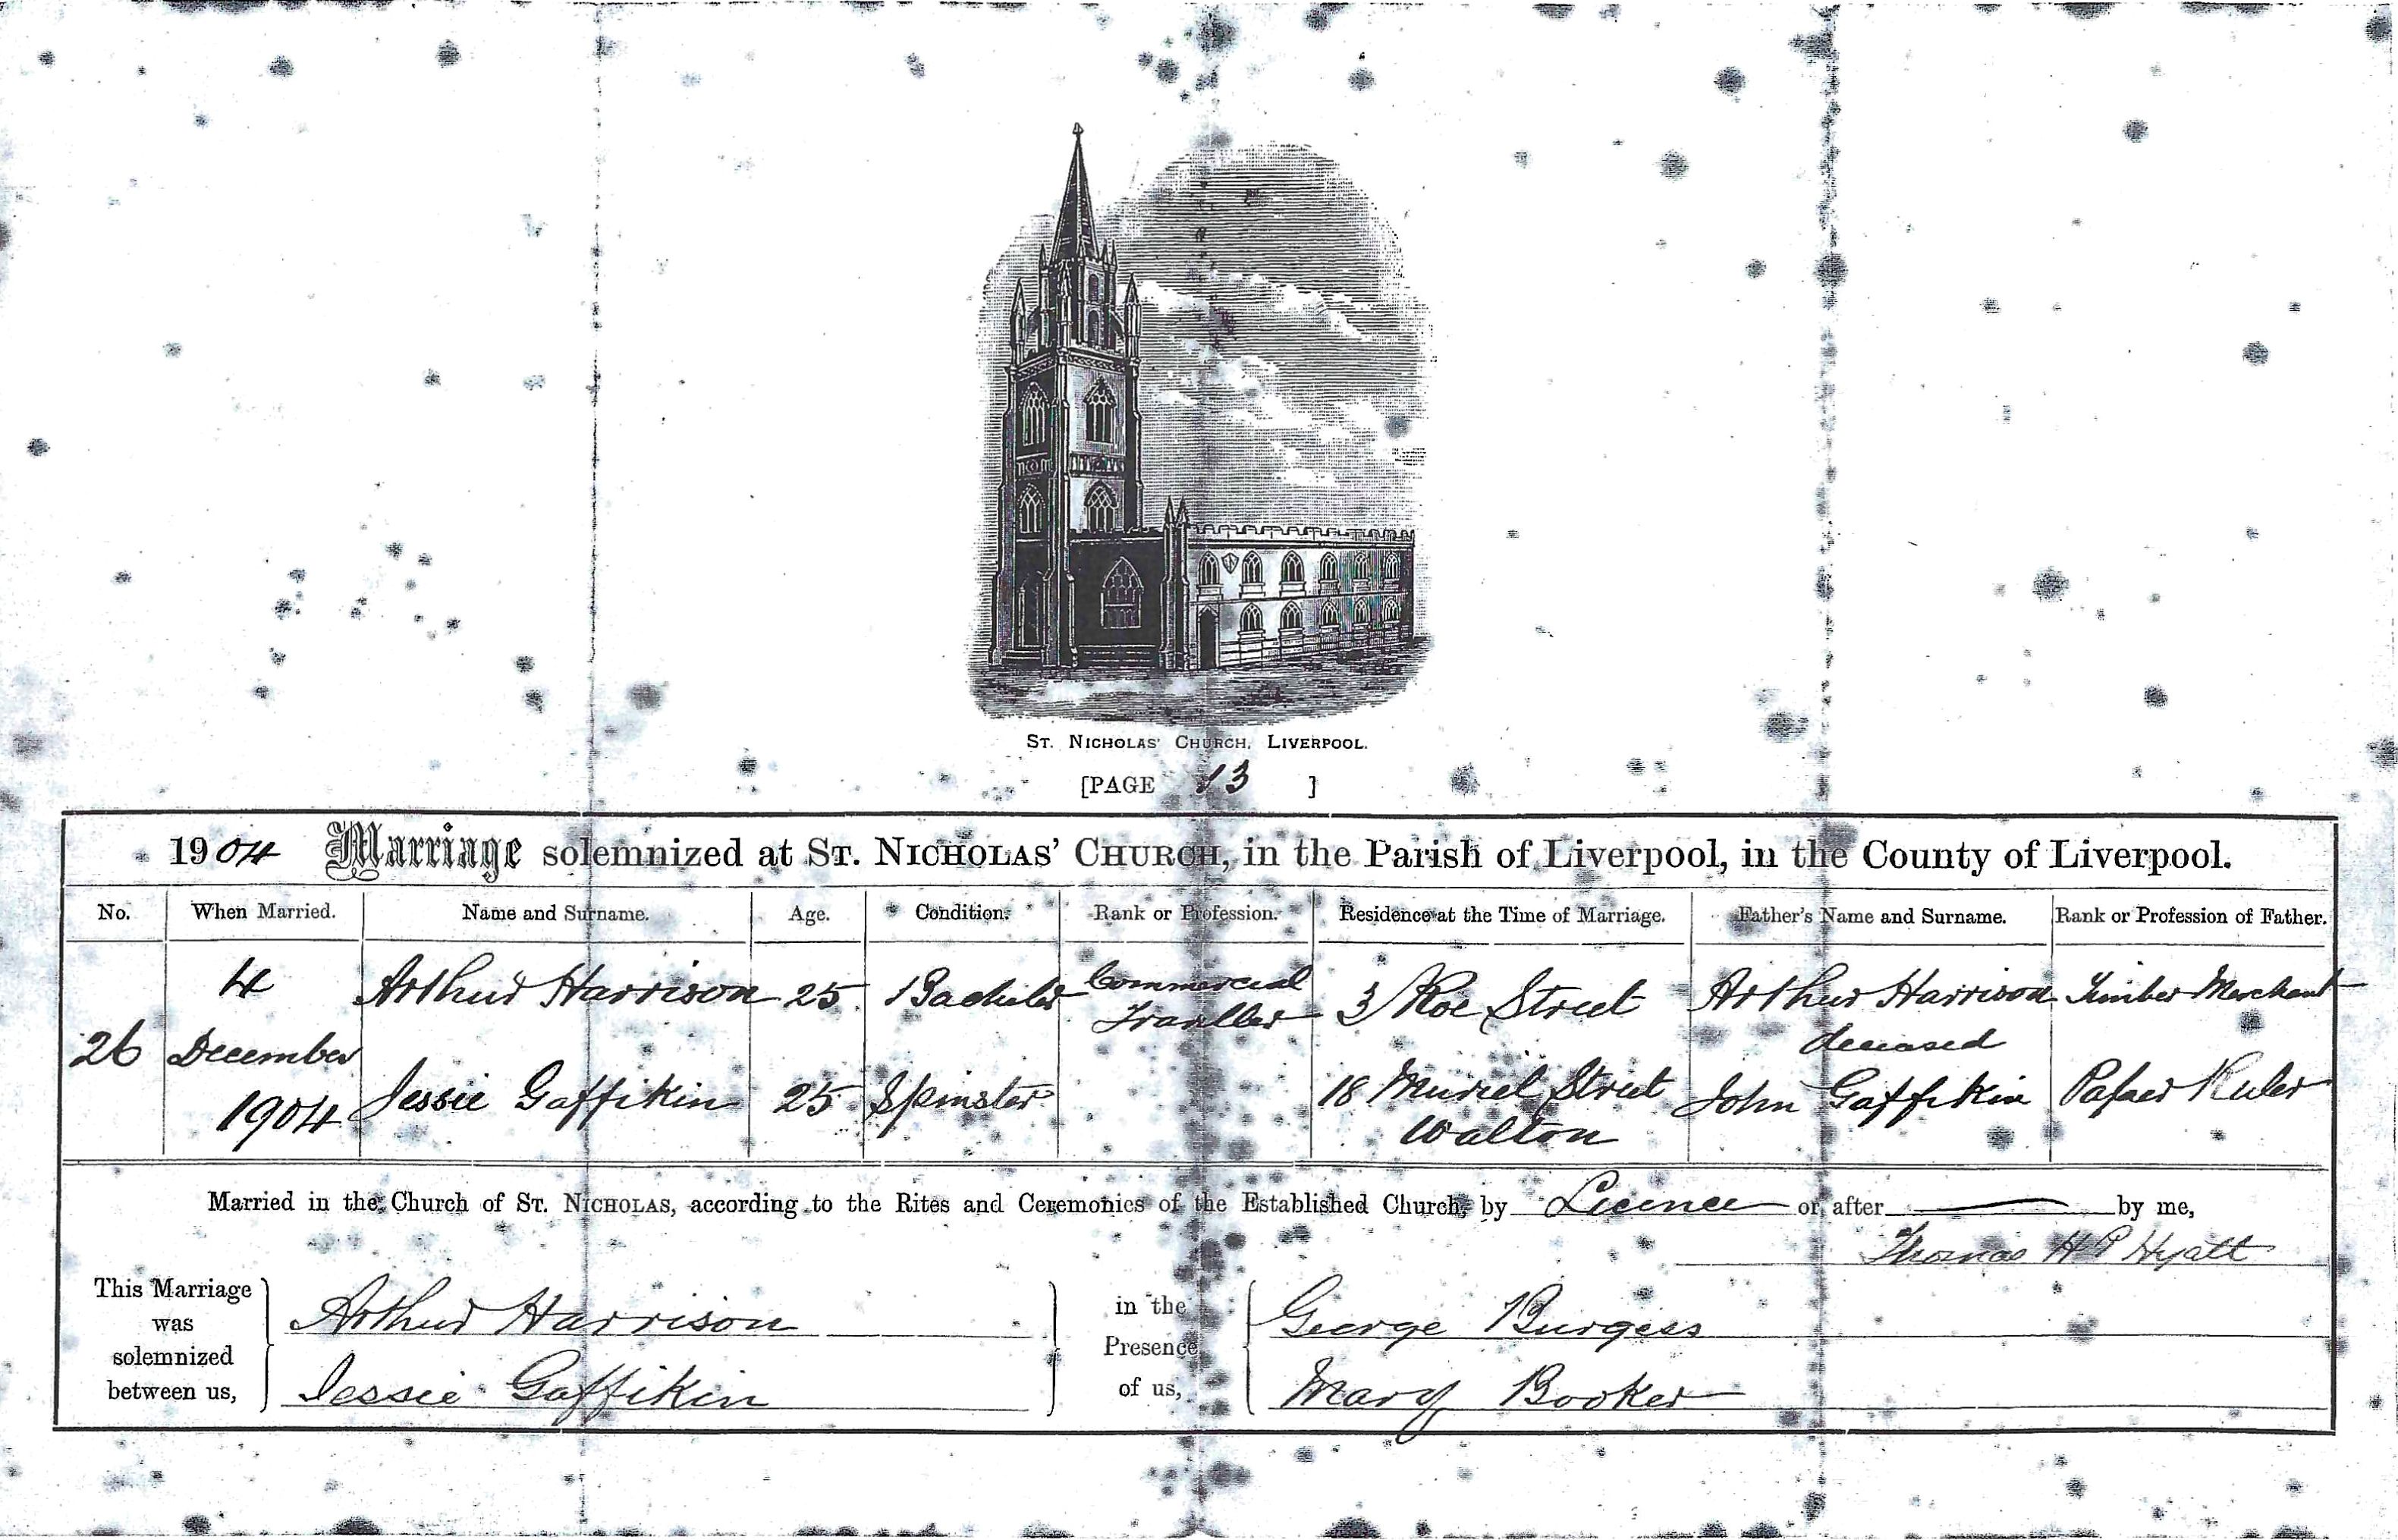 ST. NICHOLAS' CHURCH, LIVERPOOL.
[PAGE 13 ]
1904 Marriage solemnized at ST. NICHOLAS' CHURCH, in the Parish of Liverpool, in the County of Liverpool.
No. When Married. Name and Surname. Age. Condition. Rank or Profession. Residence at the Time of Marriage. Father's Name and Surname. Rank or Profession of Father.
26 4 December 1904
Arthur Harrison 25 Bachelor Commercial Traveller 3 Roe Street Arthur Harrison deceased Timber Merchant
Jessie Gaffikin 25 Spinster 18 Muriel Street Walton John Gaffikin Paper Ruler
Married in the Church of ST. NICHOLAS, according to the Rites and Ceremonies of the Established Church, by Licence or after by me,
Thomas H P Hyatt
This Marriage was solemnized between us,
Arthur Harrison
Jessie Gaffikin
in the Presence of us,
George Burgess
Mary Booker